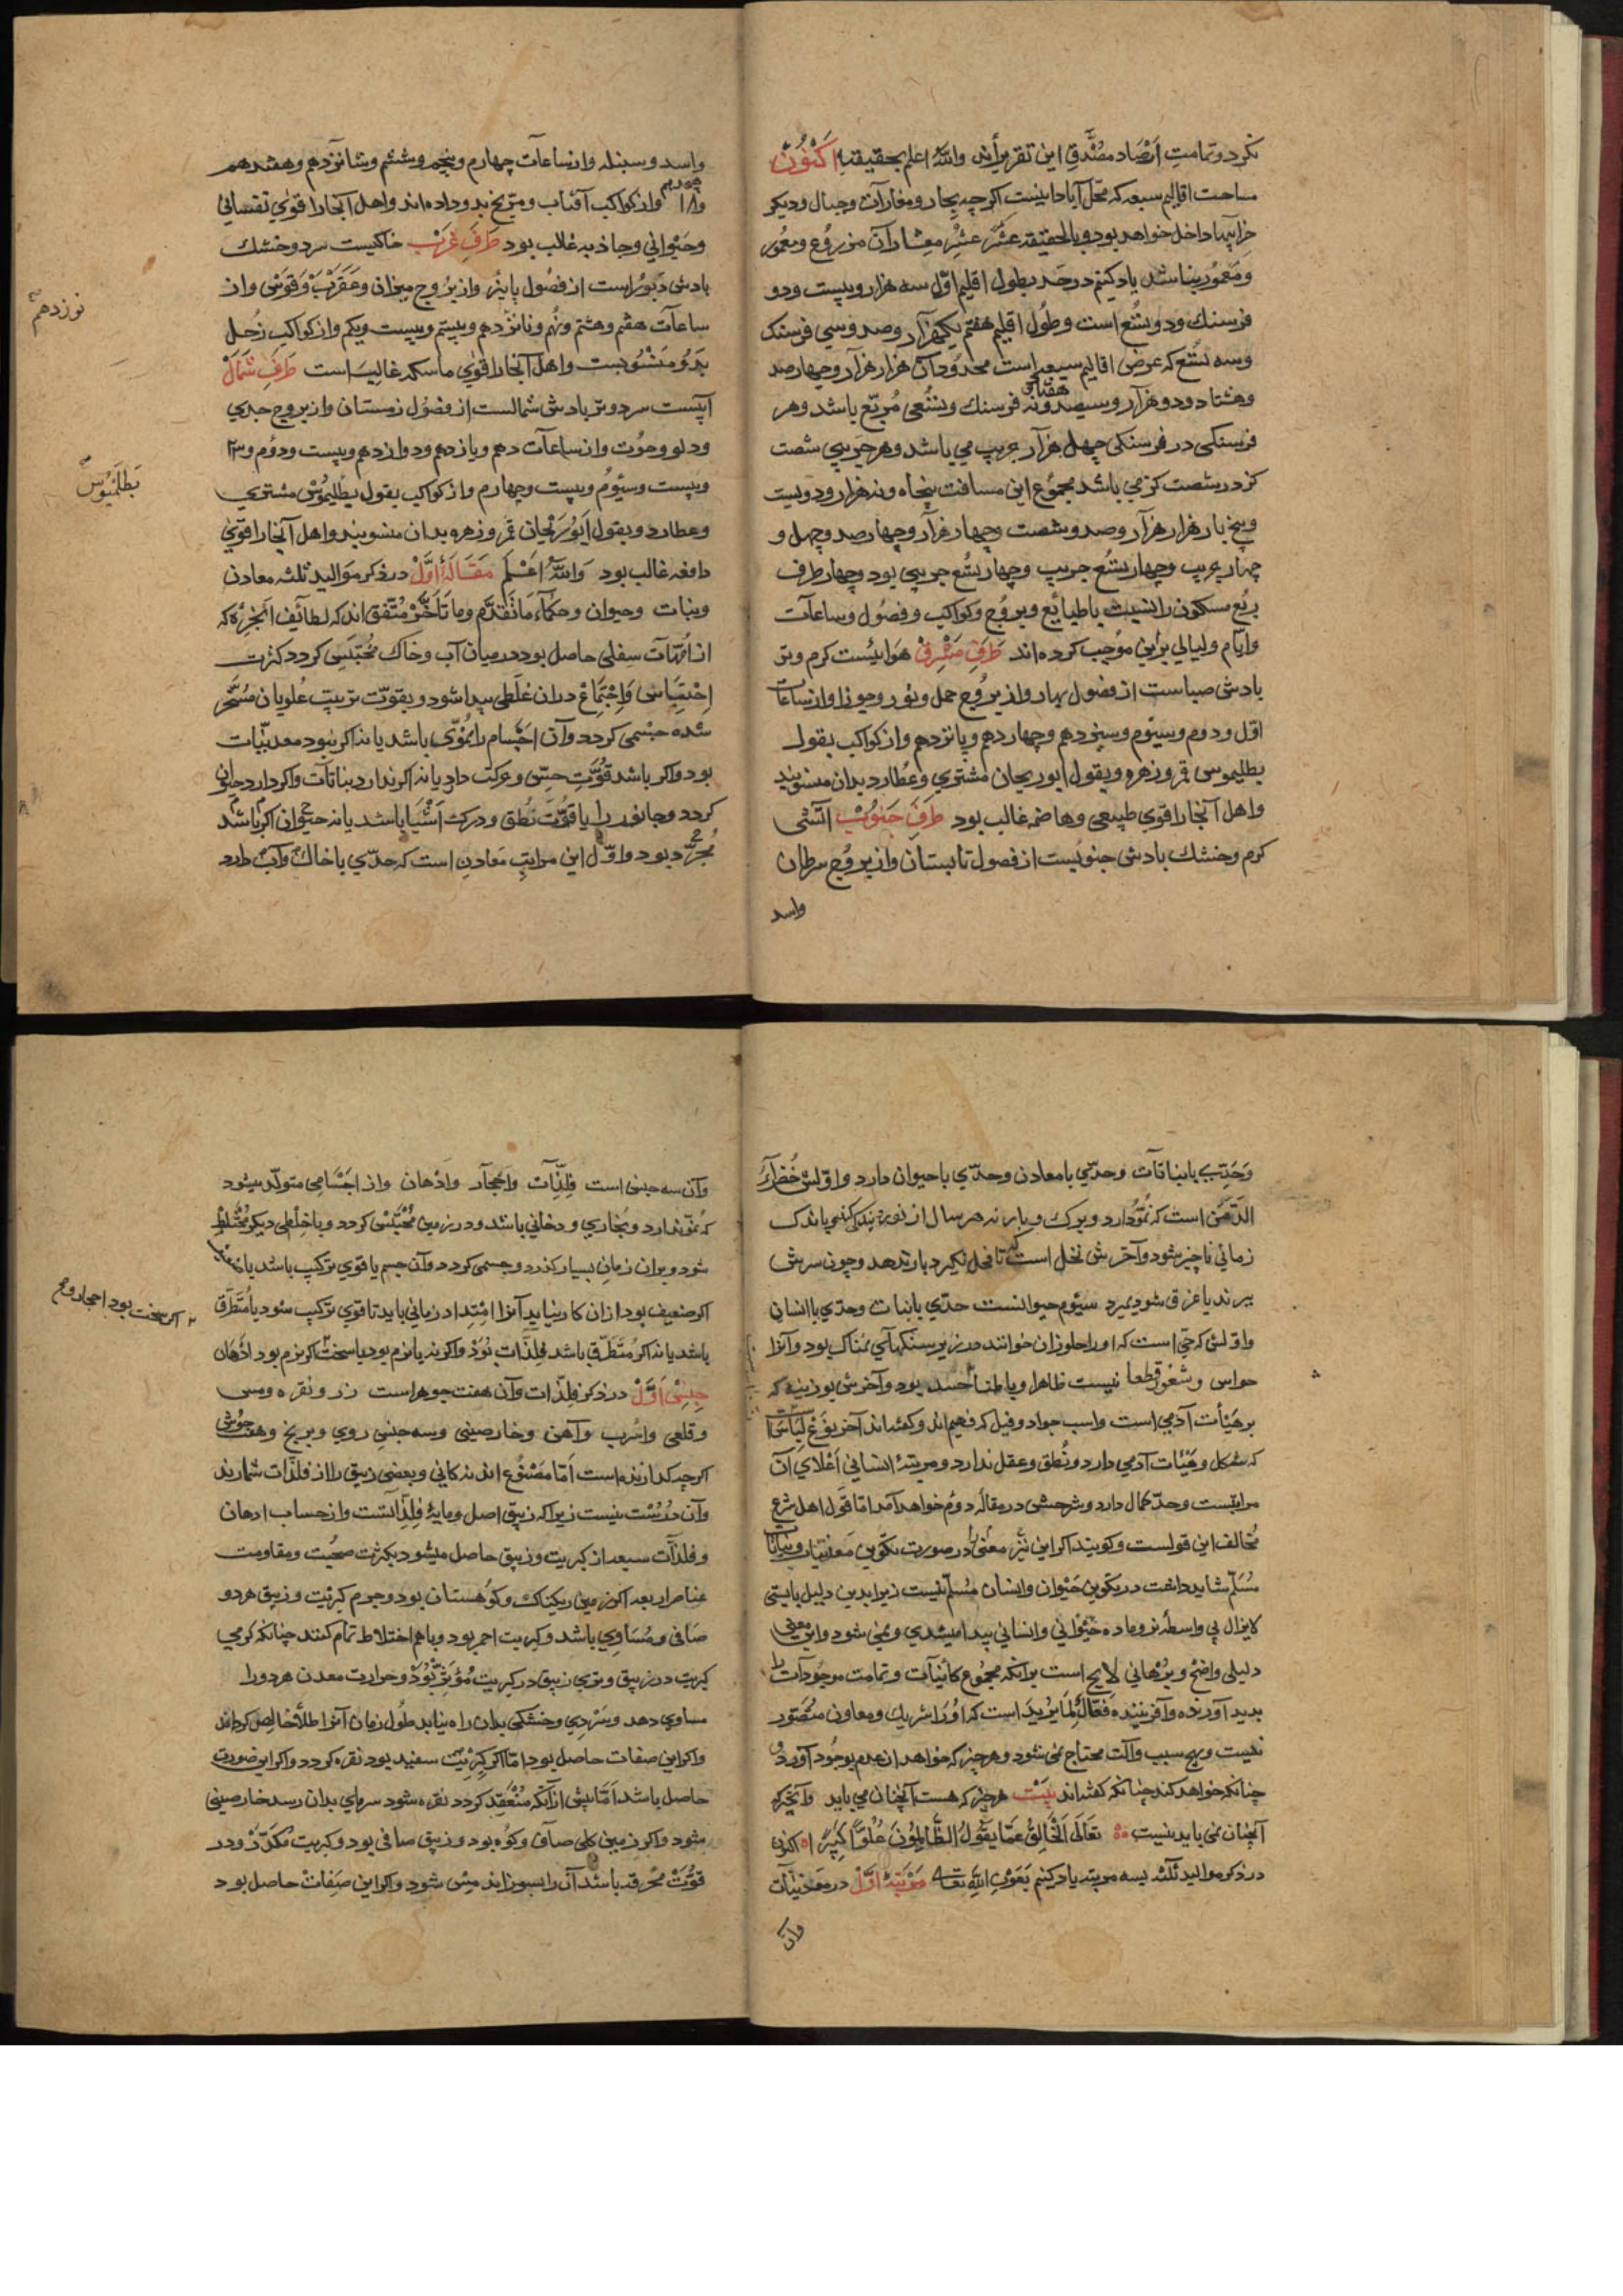 نکرد و تمامت ارصاد مصدق این تقریراند والله اعلم بحقیقته اکنون
مساحت اقالیم سبعه که محل آبادانیست اکرچه بحار و مفازات و جبال و دیکر
خرابیها داخل خواهد بود و بالحقیقه عشر عشر معشار آن مزروع و معمور
و معمور نباشد یاد کنیم در حد بطول اقلیم اول سه هزار و بیست و دو
فرسنک و دو تسع است و طول اقلیم هفتم یکهزار و صد و سی فرسنک
و سه تسع که عرض اقالیم سبعه است محدود آن هزار هزار و چهارصد
و هشتاد و دو هزار و سیصد و نه فرسنک و تسعی مربع باشد و هر
هفتاد
فرسنکی در فرسنکی چهل هزار جریب می باشد و هر جریبی شصت
کز در شصت کز می باشد مجموع این مسافت پنجاه و نه هزار و دویست
و پنج بار هزار هزار و صد و شصت و چهار هزار و چهارصد و چهل و
چهار جریب و چهار تسع جریب و چهار تسع جریبی بود و چهار طرف
ربع مسکون را نسبت با طبایع و بروج و کواکب و فصول و ساعات
و ایام و لیالی برین موجب کرده اند طرف مشرق هوائیست کرم و تر
بادش صباست از فصول بهار و از بروج حمل و ثور و جوزا و از ساعات
اول و دوم و سیوم و سیزدهم و چهاردهم و پانزدهم و از کواکب بقول
بطلیموس قمر و زهره و بقول ابوریحان مشتری و عطارد بدان منسوبند
و اهل آنجا را قوی طبیعی و هاضمه غالب بود طرف جنوب آتشی
کرم و خشک بادش جنوبیست از فصول تابستان و از بروج سرطان
واسد
واسد و سنبله و از ساعات چهارم و پنجم و ششم و شانزدهم و هفدهم
هجدهم
و ۱۸ و از کواکب آفتاب و مریخ بدو داده اند و اهل آنجا را قوی نفسانی
و حیوانی و جاذبه غالب بود طرف غرب خاکیست سرد و خشک
بادش دبور است از فصول پاییز و از بروج میزان و عقرب و قوس و از
ساعات هفتم و هشتم و نهم و نانزدهم و بیستم و بیست و یکم و از کواکب زحل
نوزدهم
بدو منسوبست و اهل آنجا را قوی ماسکه غالبست طرف شمال
آبیست سرد و تر بادش شمالست از فصول زمستان و از بروج جدی
و دلو و حوت و از ساعات دهم و یازدهم و دوازدهم و بیست و دوم و ۲۳
و بیست و سیوم و بیست و چهارم و از کواکب بقول بطلیموس مشتری
بطلمیوس
و عطارد و بقول ابوریحان قمر و زهره بدان منسوبند و اهل آنجا را قوی
دافعه غالب بود والله اعلم مقاله اول در ذکر موالید ثلثه معادن
و نبات و حیوان و حکماء ما تقدم وما تاخر متفق اند که لطائف ابخره که
از امهات سفلی حاصل بود در میان آب و خاک محتبس کردد کثرت
احتباس و اجتماع در آن غلظی پیدا شود و بقوت تربیت علویان مسخر
شده جسمی کردد و آن اجسام را نموی باشد یا نه اکر نبود معدنیات
بود و اکر باشد قوت حس و حرکت دارد یا نه اکر ندارد نباتات و اکر دارد حیوانی
کردد و جانور را یا قوت نطق و درکت اشیا باشد یا نه حیوان اکر باشد
مجرد بود و اول این مراتب معادن است که حدی با خاک و آب دارد
وحدی با نباتات وحدی با معادن وحدی با حیوان دارد و اولش خضراء
الدمن است که نمو دارد و برک و بار نه هر سال از نو زند کنی باندک
زمانی ناچیز شود و آخرش نخل است که تا فحل نکیرد بار ندهد و چون سرش
ببرند یا غرق شود بمیرد سیوم حیوانست حدی با نبات و حدی با انسانی
و اولش کرمی است که او را حلوزان خوانند در زیر سنکهای نمناک بود و آنرا
حواس و شعور قطعا نیست ظاهرا و باطنا جسد بود و آخرش بوزینه که
بر هیأت آدمی است و اسب جواد و فیل که فهیم اند و کفته اند آخر نوع نسناس است
که شکل و هیئات آدمی دارد و نطق و عقل ندارد و مرتبه انسانی اعلای آن
مراتبست و حد کمال دارد و شرحش در مقاله دوم خواهد آمد اما قول اهل شرع
مخالف این قولست و کویند اکر این نیز معنی در صورت تکوین معدنیات و نباتات
مسلم شاید داشت در تکوین حیوان و انسان مسلم نیست زیرا بدین دلیل بایستی
لایزال بی واسطه نر و ماده حیوانی و انسانی پیدا میشدی و نمی شود و این معنی
دلیلی واضح و برهانی لایح است برآنکه مجموع کائنات و تمامت موجودات را
بدید آورنده و آفریننده فعال لما یرید است که او را شریک و معاون متصور
نیست و بهیچ سبب و آلت محتاج نمی شود و هر چیز که خواهد از عدم بوجود آورد و
چنانکه خواهد کند چنانکه کفته اند بیت هر چیز که هست آنچنان می باید وانچیز که
آنچنان نمی باید نیست تعالی الخالق عما یقول الظالمون علوا کبیرا اکنون
در ذکر موالید ثلثه بسه مرتبه یاد کنیم بعون الله تعالی مرتبه اول در معدنیات
وان
وآن سه جنس است فلذات و احجار و ادهان و از اجسامی متولد میشود
که نمو ندارد و بخاری و دخانی باشد و در زمین محتبس کردد و با خلطی دیکر مختلط
شود و بر آن زمان بسیار کذرد و جسمی کردد و آن جسم یا قوی ترکیب باشد یا
اکر ضعیف بود از آن کار نیاید آنرا امتداد زمانی باید تا قوی ترکیب شود یا متطرق
باشد یا نه اکر متطرق باشد فلذات بود و اکر نه یا نرم بود یا سخت اکر نرم بود ادهان
اکر سخت بود احجار و
جنس اول در ذکر فلذات و آن هفت جوهر است زر و نقره و مس
و قلعی و اسرب و آهن و خارصینی و سه جنس روی و برنج و هفت جوش
اکرچه کدازنده است اما مصنوع اند نه کانی و بعضی زیبق را از فلذات شمارند
و آن درست نیست زیرا که زیبق اصل و مایه فلذاتست و از حساب ادهان
و فلذات سبعه از کبریت و زیبق حاصل میشود بکثرت صحبت و مقاومت
عناصر اربعه اکر زمین ریکناک و کوهستان بود و جرم کبریت و زیبق هر دو
صافی و مساوی باشد و کبریت احمر بود و باهم اختلاط تمام کنند چنانکه کرمی
کبریت در زیبق و تری زیبق در کبریت مؤثر بود و حرارت معدن هر دو را
مساوی دهد و سردی و خشکی بدان راه نیابد طول زمان آنرا طلاء خالص کرداند
و اکر این صفات حاصل بود اما اکر کبریت سفید بود نقره کردد و اکر این صورت
حاصل باشد اما پیش از آنکه منعقد کردد نقره شود سرمای بدان رسد خارصینی
شود و اکر زمین کلی صاف و کوه بود و زیبق صافی بود و کبریت مکدر و در
قوت محرقه باشد آن را بسوزاند مس شود و اکر این صفات حاصل بود